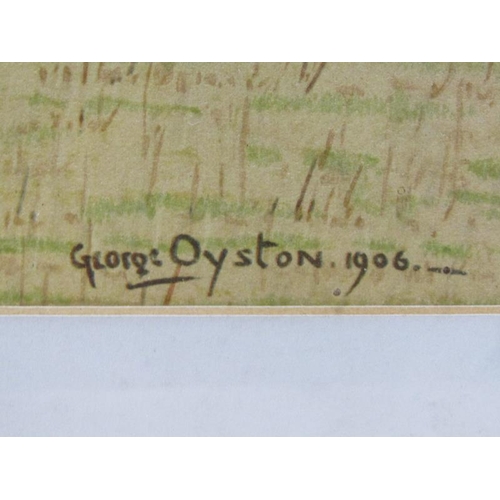 George Oyston. 1906.